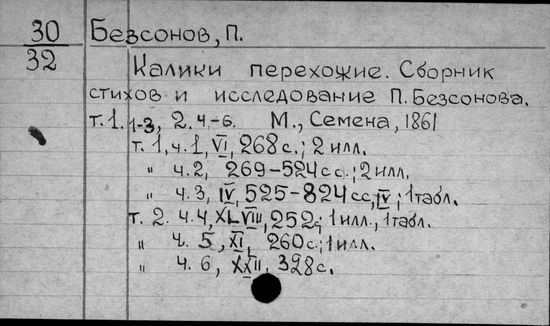 30 Безсонов, П.
32
Калики перехожие. Сборник
стихов и исследование П. Безсонова.
т. 1. 1-3, 2. 4-6. М., Семена, 1861
т. 1, ч. 1, VI, 268 с.; 2 илл.
" ч. 2, 269-524 сс.; 2 илл.
" ч. 3, IV, 525-824 сс, IV; 1 табл.
т. 2. ч. 4, XLVIII, 252; 1 илл., 1 табл.
" ч. 5, XI, 260 с.; 1 илл.
" ч. 6, XXII, 328 с.